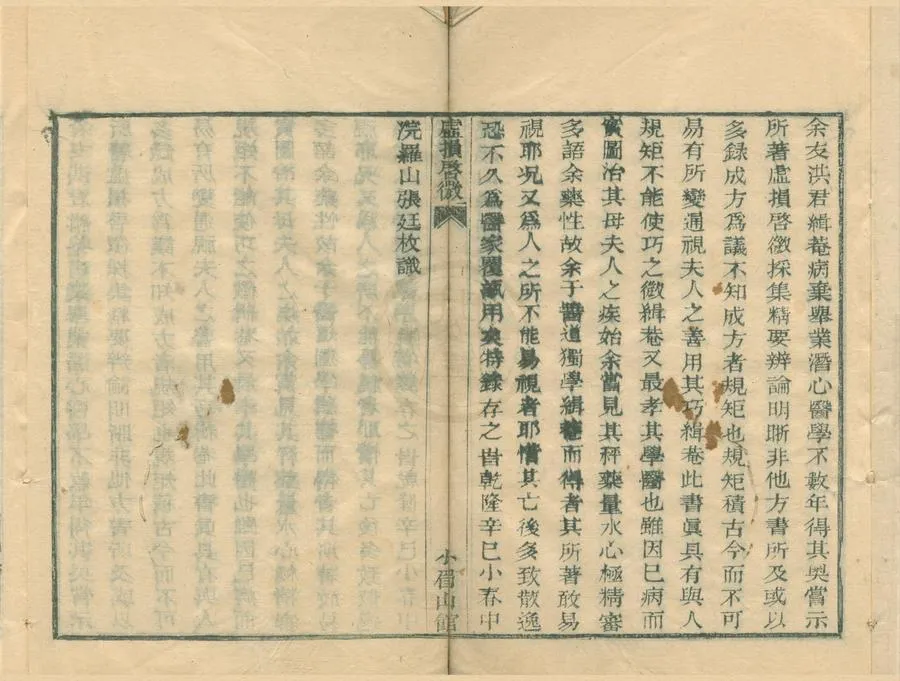 余友洪君緝菴病棄舉業潛心醫學不數年得其奧嘗示
所著虛損啓微採集精要辨論明晰非他方書所及或以
多録成方爲議不知成方者規矩也規矩積古今而不可
易有所變通視夫人之善用其巧緝菴此書眞具有與人
規矩不能使巧之微緝菴又最孝其學醫也雖因巳病而
實圖治其母夫人之疾始余嘗見其秤藥量水心極精審
多語余藥性故余于醫道獨學緝菴而得者其所著敢易
視耶况又爲人之所不能易視者耶惜其亡後多致散逸
恐不久爲醫家覆瓿用矣特錄存之旹乾隆辛巳小春中
浣羅山張廷枚識
虛損啓微
小眉山館